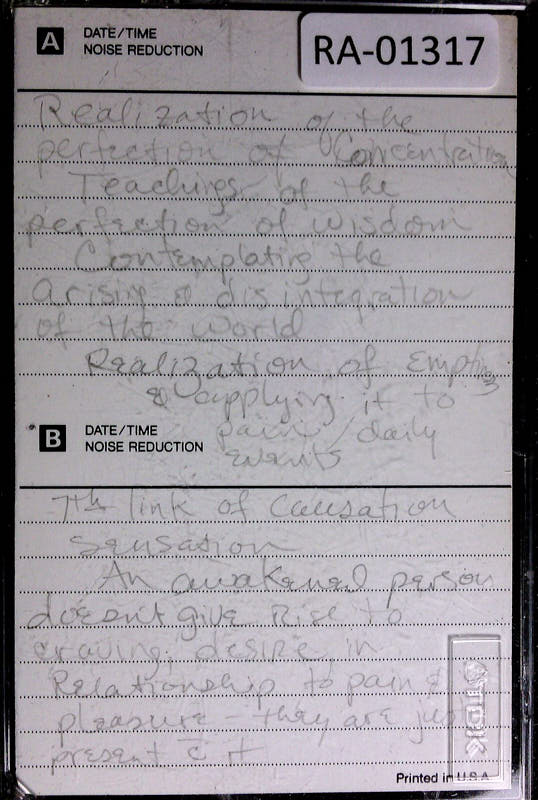 A DATE/TIME
NOISE REDUCTION
RA-01317
Realization of the
perfection of Concentration
Teachings of the
perfection of wisdom
Contemplating the
arising & disintegration
of the world
Realization of Emptiness
& applying it to
pain/daily
events
B DATE/TIME
NOISE REDUCTION
7th link of Causation
sensation
An awakened person
doesn't give Rise to
craving, desire in
Relationship to pain &
pleasure - they are just
present c̄ it
TDK
Printed in U.S.A.